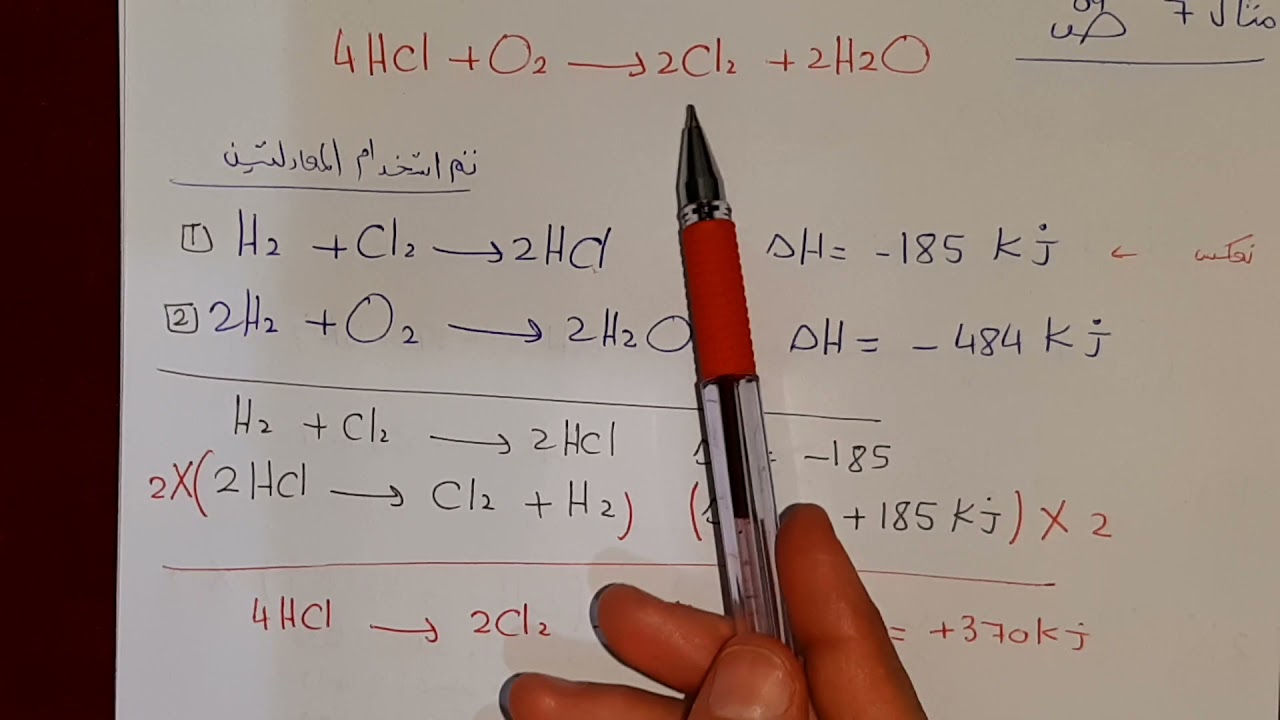 مثال 7 ص
4HCl + O2 → 2Cl2 + 2H2O
تم استخدام المعادلتين
1 H2 + Cl2 → 2HCl ΔH = -185 kj ← نعكس
2 2H2 + O2 → 2H2O ΔH = -484 kj
H2 + Cl2 → 2HCl -185
2X(2HCl → Cl2 + H2) ( +185 kj) X 2
4HCl → 2Cl2 = +370 kj